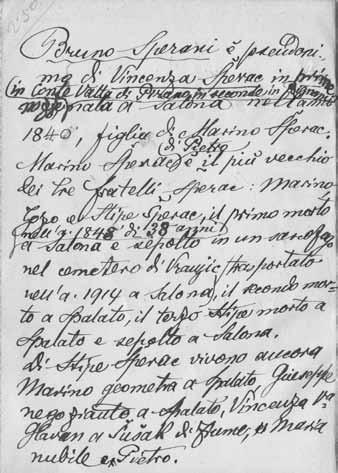 250
Bruno Sperani è pseudoni
mo di Vincenza Sperac in prime
(in Conte Vatta di Pirano, in seconde in
nozze) nata a Salona nell'anno
1840, figlia di Marino Sperac.
(di Pietro)
Marino Sperac è il più vecchio
dei tre fratelli Šperac: Marino
Jozo e Stipe Šperac, il primo morto
(nell'a. 1848 di 38 anni)
a Salona e sepolto in un sarcofago
nel cemetero di Vranjic, (trasportato
nell'a. 1914 a Salona), il secondo mor-
to a Spalato, il terzo Stipe morto a
Spalato e sepolto a Salona.
Di Stipe Sperac vivono ancora
Marino geometra a Spalato, Giuseppe
negoziante a Spalato, Vincenza
Glavan a Sušak di Fiume, e Maria
nubile e Pietro.